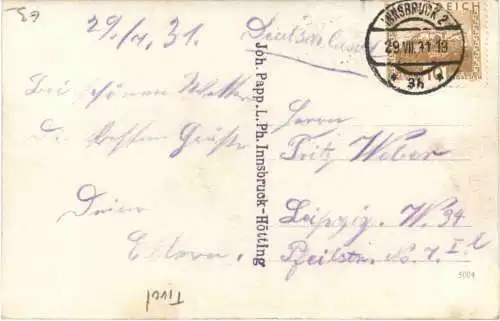 29./7. 31.
Deutschland
Bei schönem Wetter
die besten Grüße
Deine
Eltern.
Tirol
Joh. Papp. L. Ph. Innsbruck-Hötting
REICH
INNSBRUCK 2
29.VII.31.19
* 3h *
Herrn
Fritz Weber
Leipzig. W. 34
Pfeilstr. No. 7. I. l
5004